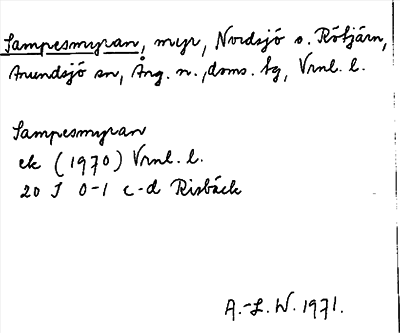 Sampesmyran, myr, Nordsjö o. Rötjärn,
Anundsjö sn, Ång. n., doms. tg, Vrnl. l.
Sampesmyran
ek (1970) Vrnl. l.
20 J 0-1 c-d Risbäck
A.-L. W. 1971.